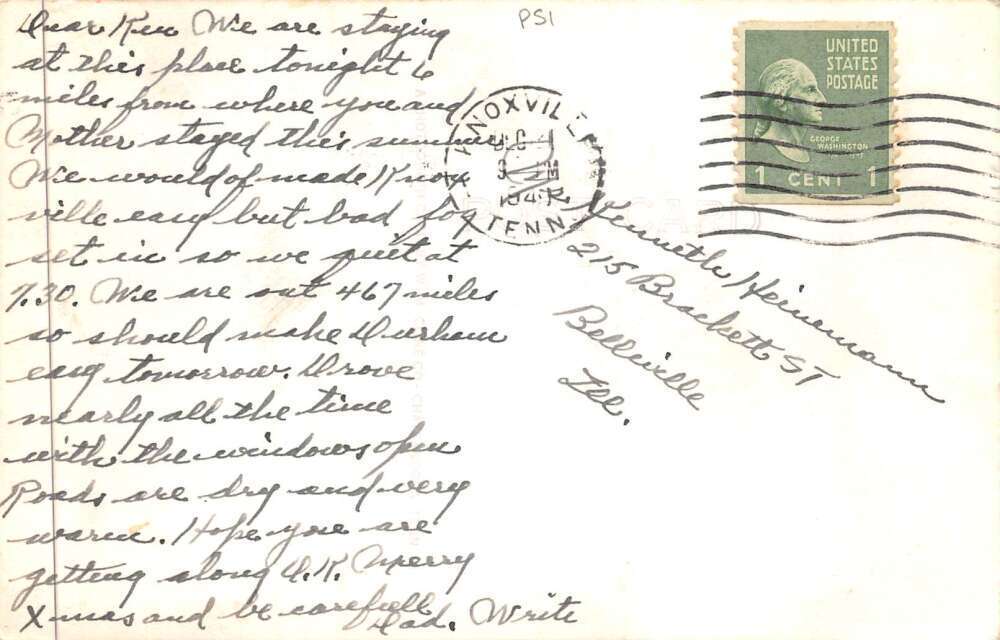 Dear Ken We are staying
at this place tonight 6
miles from where you and
Mother stayed this summer
We would of made Knox
ville easy but bad fog
set in so we quit at
7.30. We are out 467 miles
so should make Durham
easy tomorrow. Drove
nearly all the time
with the windows open
Roads are dry and very
warm. Hope you are
getting along O.K. Merry
X-mas and be carefull
Dad. Write
PSI
KNOXVILLE
DEC
TENN.
UNITED
STATES
POSTAGE
GEORGE
WASHINGTON
1 CENT 1
Kenneth Heinemann
215 Brackett ST
Belleville
Ill.